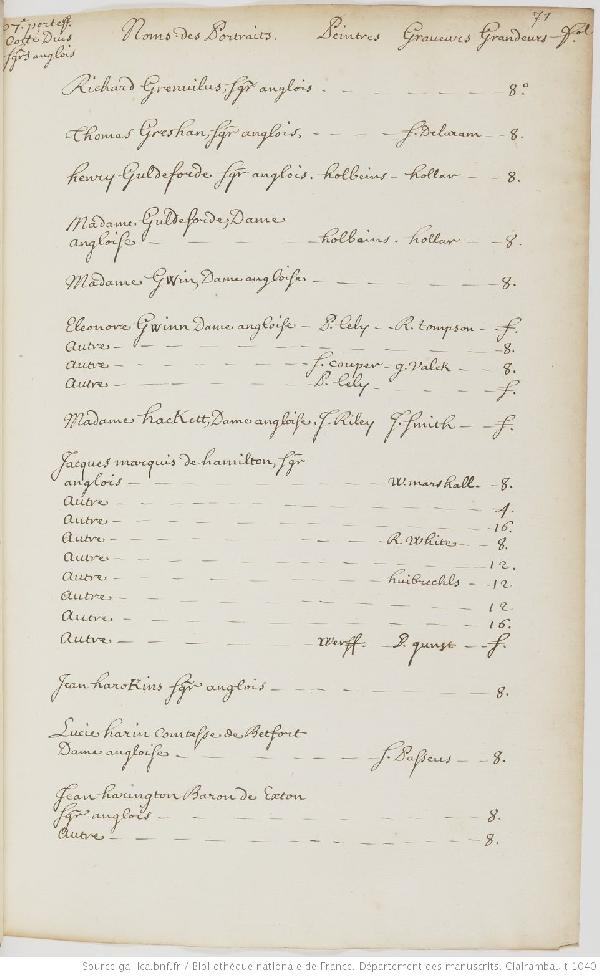 71
7.e porteff.
Cotté Ducs
Sgrs anglois
Noms des Portraits. Peintres Graveurs Grandeurs fol.
Richard Grenvilus, Sgr anglois. 8.o
Thomas Greshan, Sgr anglois. f. Delaram 8.
henry Guldeforde Sgr anglois. holbeins hollar 8.
Madame Guldeforde, Dame
angloise holbeins. hollar 8.
Madame Gwin, Dame angloise. 8.
Eleonore Gwinn Dame angloise P. Lely R. tompson f.
Autre 8.
Autre f. Couper g. Valck 8.
Autre P. Lely f.
Madame hackett, Dame angloise. J. Riley J. Smith f.
Jacques marquis de hamilton, Sgr
anglois W. marshall. 8.
Autre 4.
Autre 16.
Autre R. White 8.
Autre 12.
Autre huibrechts 12
Autre 12
Autre 16.
Autre Werff. P. gunst f.
Jean harokins Sgr anglois 8.
Lucie harin Comtesse de Betfort
Dame angloise f. Passeus 8.
Jean harington Baron de Exton
Sgr anglois 8.
Autre 8.
Source gallica.bnf.fr / Bibliothèque nationale de France. Département des manuscrits. Clairambault 1040